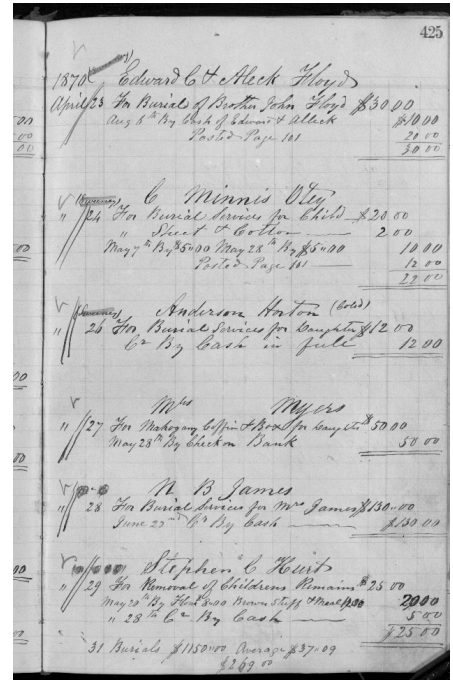 425
1870 Edward C & Aleck Floyd
April 23 For Burial of Brother John Floyd $30 00
Aug 6th By Cash of Edward & Alleck $10 00
Posted Page 161 20 00
30 00
C Minnis Otey
" 24 For Burial Services for Child $20 00
" Sheet & Cotton 2 00
May 7th By $5"00 May 28th By $5"00 10 00
Posted Page 161 12 00
22 00
Anderson Horton (Cold)
" 26 For Burial Services for Daughter $12 00
Cr By Cash in full 12 00
Mrs Myers
" 27 For Mahogany Coffin & Box for Daughter $50 00
May 28th By Check on Bank 50 00
N B James
" 28 For Burial Services for Mrs James $130"00
June 22nd Cr By Cash $130 00
Stephen C Hurt
" 29 For Removal of Childrens Remains $25 00
May 20th By 8"00 Brown Stuff & Meal 12.00 20 00
" 28th Cr By Cash 5 00
$25 00
31 Burials $1150"00 Average $37"09
$269 00